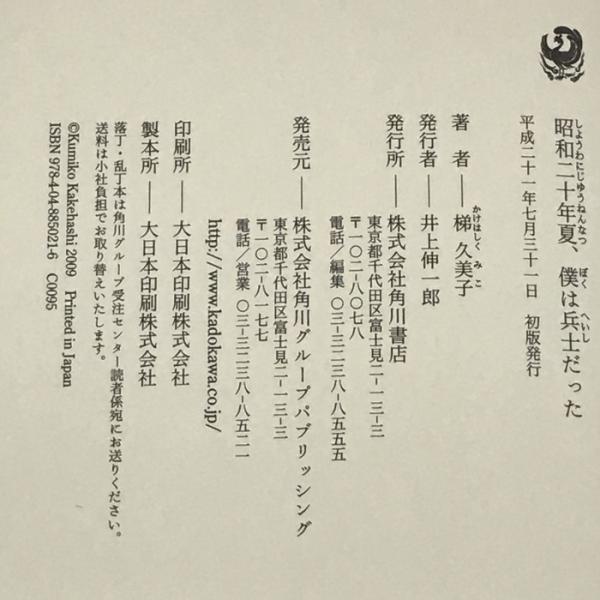 昭和二十年夏、僕は兵士だった
しょうわにじゅうねんなつ ぼく へいし
平成二十一年七月三十一日 初版発行
著 者――梯 久美子
かけはし く み こ
発行者――井上伸一郎
発行所――株式会社角川書店
東京都千代田区富士見二-十三-三
〒一〇二-八〇七八
電話/編集 〇三-三二三八-八五五五
発売元――株式会社角川グループパブリッシング
東京都千代田区富士見二-十三-三
〒一〇二-八一七七
電話/営業 〇三-三二三八-八五二一
http://www.kadokawa.co.jp/
印刷所――大日本印刷株式会社
製本所――大日本印刷株式会社
落丁・乱丁本は角川グループ受注センター読者係宛にお送りください。
送料は小社負担でお取り替えいたします。
©Kumiko Kakehashi 2009 Printed in Japan
ISBN 978-4-04-885021-6 C0095